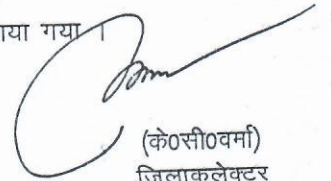 गया ।
(के०सी०वर्मा)
जिलाकलेक्टर